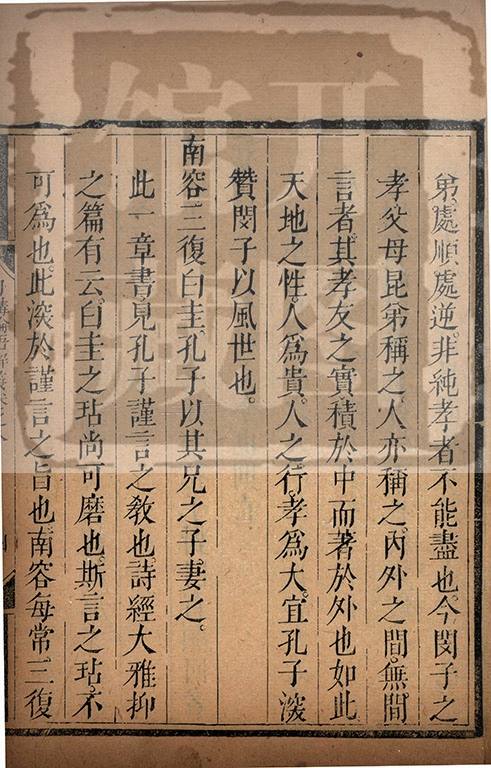 弟。處順處逆。非純孝者不能盡也。今閔子之
孝。父母昆弟稱之。人亦稱之。內外之間。無間
言者。其孝友之實。積於中而著於外也如此
天地之性。人爲貴。人之行。孝爲大。宜孔子深
贊閔子以風世也。
南容。三復白圭。孔子以其兄之子。妻之。
此一章書。見孔子謹言之敎也。詩經大雅抑
之篇有云。白圭之玷尚可磨也。斯言之玷。不
可爲也。此深於謹言之旨也。南容每常。三復